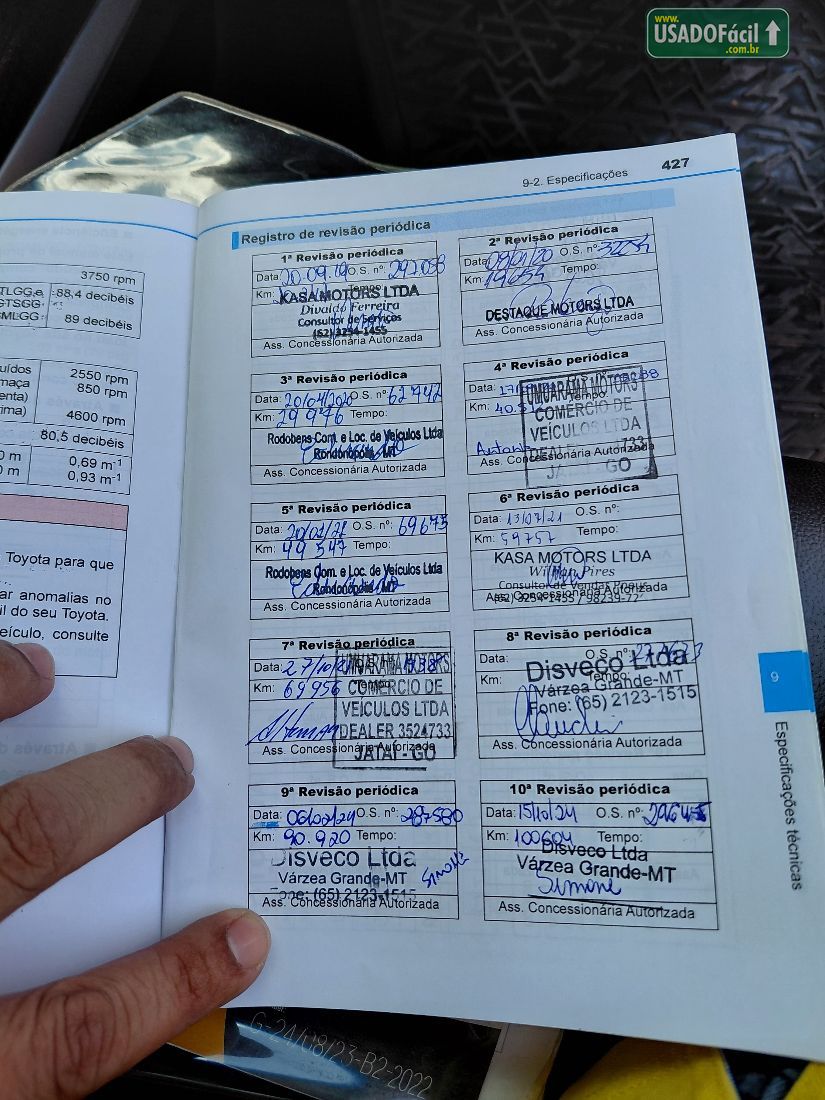 www.
USADOFácil
.com.br
9-2. Especificações 427
3750 rpm
88,4 decibéis
89 decibéis
2550 rpm
850 rpm
4600 rpm
80,5 decibéis
0,69 m-1
0,93 m-1
Toyota para que
ar anomalias no
il do seu Toyota.
eículo, consulte
Registro de revisão periódica
1ª Revisão periódica
Data: 20.09.19 O.S. nº:
Km:
KASA MOTORS LTDA
Divaldo Ferreira
Consultor de Serviços
(62) 3254-1455
Ass. Concessionária Autorizada
2ª Revisão periódica
Data: O.S. nº:
Km: Tempo:
DESTAQUE MOTORS LTDA
Ass. Concessionária Autorizada
3ª Revisão periódica
Data: 20/04/2020 O.S. nº: 62742
Km: 29 976 Tempo:
Rodobens Com. e Loc. de Veículos Ltda
Rondonópolis - MT
Ass. Concessionária Autorizada
4ª Revisão periódica
Data:
Km:
UMUARAMA MOTORS
COMERCIO DE
VEÍCULOS LTDA
JATAÍ - GO
Ass. Concessionária Autorizada
5ª Revisão periódica
Data: O.S. nº: 69675
Km: 49 547 Tempo:
Rodobens Com. e Loc. de Veículos Ltda
Rondonópolis - MT
Ass. Concessionária Autorizada
6ª Revisão periódica
Data: 13/07/21 O.S. nº:
Km: 59757 Tempo:
KASA MOTORS LTDA
Pires
Consultor de Vendas
Ass. Concessionária Autorizada
7ª Revisão periódica
Data:
Km: 69956
UMUARAMA MOTORS
COMERCIO DE
VEÍCULOS LTDA
DEALER 3524733
JATAÍ - GO
Ass. Concessionária Autorizada
8ª Revisão periódica
Data: O.S. nº:
Km: Tempo:
Disveco Ltda
Várzea Grande-MT
Fone: (65) 2123-1515
Ass. Concessionária Autorizada
9ª Revisão periódica
Data: 06/02/24 O.S. nº: 287580
Km: 90.920 Tempo:
Disveco Ltda
Várzea Grande-MT
Fone: (65) 2123-1515
Simone
Ass. Concessionária Autorizada
10ª Revisão periódica
Data: 15/10/24 O.S. nº:
Km: 100604 Tempo:
Disveco Ltda
Várzea Grande-MT
Simone
Ass. Concessionária Autorizada
9
Especificações técnicas
G-24/08/23-B2-2022